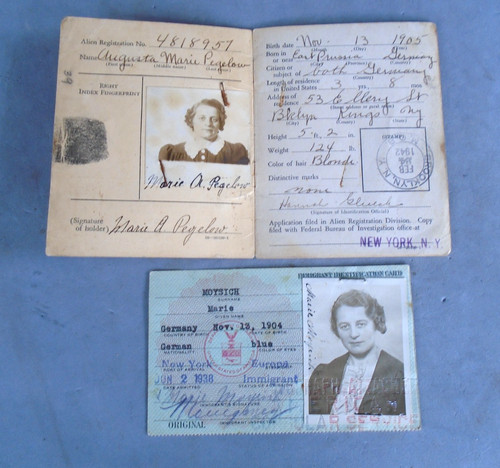 Alien Registration No. 4818957
Name Augusta Marie Pegelow
(First name) (Middle name) (Last name)
RIGHT
INDEX FINGERPRINT
Marie A. Pegelow
(Signature
of holder) Marie A Pegelow
Birth date Nov. 13 1905
Born in
or near East Prussia Germany
Citizen or
subject of both Germany
Length of residence
in United States 3 yrs. 8 mos.
Address of
residence 53 Ellery St
Bklyn Kings Ny
(City) (County) (State)
Height 5 ft. 2 in.
Weight 124 lb.
Color of hair Blonde
Distinctive marks
none
(Signature of Identification Official)
Application filed in Alien Registration Division. Copy
filed with Federal Bureau of Investigation office at
NEW YORK, N. Y.
BROOKLYN, N.Y.
FEB
1942
IMMIGRANT IDENTIFICATION CARD
MOYSICH
SURNAME
Marie
GIVEN NAME
Germany Nov. 12, 1904
COUNTRY OF BIRTH DATE OF BIRTH
German blue
NATIONALITY COLOR OF EYES
New York Europa
PORT OF ARRIVAL
JUN 2 1938 Immigrant
DATE ADMITTED STATUS OF ADMISSION
Marie Moysich
IMMIGRANT'S SIGNATURE
IMMIGRANT INSPECTOR
ORIGINAL